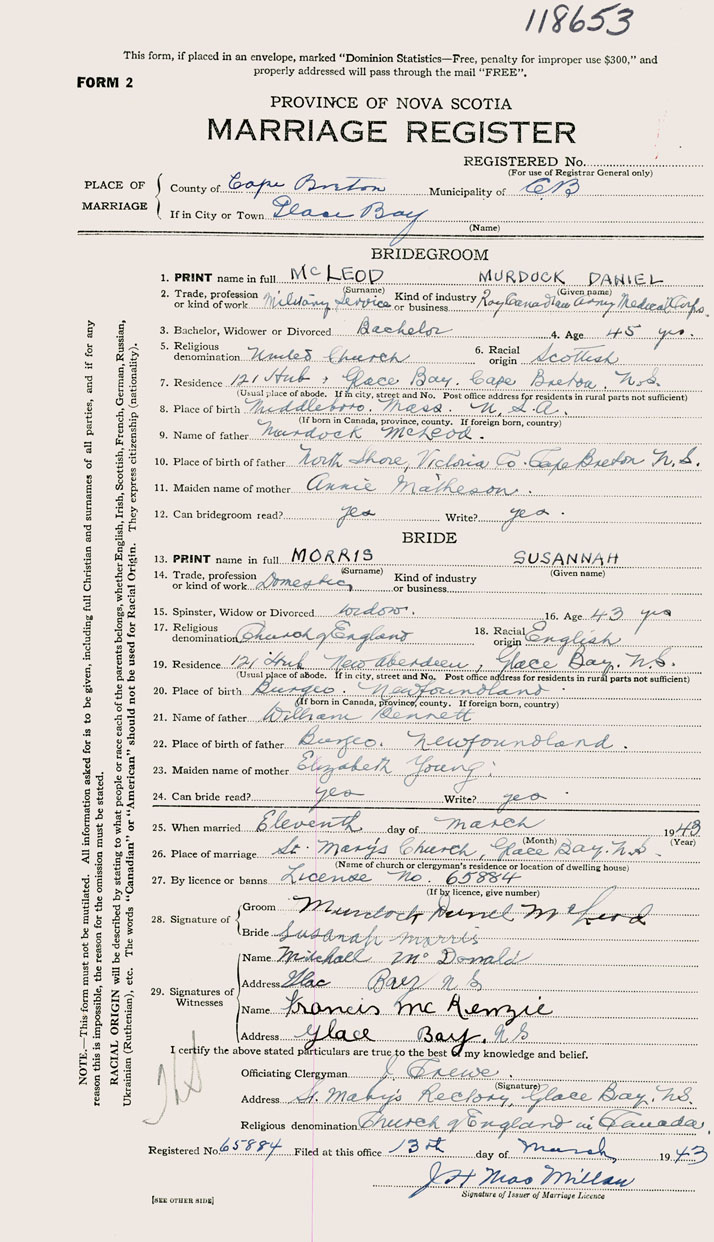 118653
This form, if placed in an envelope, marked "Dominion Statistics—Free, penalty for improper use $300," and
properly addressed will pass through the mail "FREE".
FORM 2
PROVINCE OF NOVA SCOTIA
MARRIAGE REGISTER
REGISTERED No.
(For use of Registrar General only)
PLACE OF MARRIAGE
County of Cape Breton Municipality of CB
If in City or Town Glace Bay
(Name)
BRIDEGROOM
1. PRINT name in full McLEOD MURDOCK DANIEL
(Surname) (Given name)
2. Trade, profession or kind of work Military Service Kind of industry or business Roy Canadian Army Medical Corps.
3. Bachelor, Widower or Divorced Bachelor 4. Age 45 yrs.
5. Religious denomination United Church 6. Racial origin Scottish
7. Residence 121 Hub, Glace Bay. Cape Breton. N.S.
(Usual place of abode. If in city, street and No. Post office address for residents in rural parts not sufficient)
8. Place of birth Middleboro. Mass. U.S.A.
(If born in Canada, province, county. If foreign born, country)
9. Name of father Murdock McLeod.
10. Place of birth of father North Shore, Victoria Co. Cape Breton N.S.
11. Maiden name of mother Annie Matheson.
12. Can bridegroom read? yes Write? yes.
BRIDE
13. PRINT name in full MORRIS SUSANNAH
(Surname) (Given name)
14. Trade, profession or kind of work Domestic Kind of industry or business
15. Spinster, Widow or Divorced Widow. 16. Age 43 yrs
17. Religious denomination Church of England 18. Racial origin English
19. Residence 121 Hub New Aberdeen, Glace Bay. N.S.
(Usual place of abode. If in city, street and No. Post office address for residents in rural parts not sufficient)
20. Place of birth Burgeo. Newfoundland.
(If born in Canada, province, county. If foreign born, country)
21. Name of father William Bennett
22. Place of birth of father Burgeo. Newfoundland.
23. Maiden name of mother Elizabeth Young.
24. Can bride read? yes Write? yes
25. When married Eleventh day of March 1943
(Month) (Year)
26. Place of marriage St. Mary's Church, Glace Bay. N.S.
(Name of church or clergyman's residence or location of dwelling house)
27. By licence or banns License No. 65884
(If by licence, give number)
28. Signature of Groom Murdock Daniel McLeod
Bride Susanah Morris
29. Signatures of Witnesses
Name Mitchell McDonald
Address Glac Bay N S
Name Francis McKenzie
Address Glace Bay. N S
I certify the above stated particulars are true to the best of my knowledge and belief.
Officiating Clergyman J. Crewe.
(Signature)
Address St. Mary's Rectory, Glace Bay. N.S.
Religious denomination Church of England in Canada.
Registered No. 65884 Filed at this office 13th day of March 1943
J H MacMillan
Signature of Issuer of Marriage Licence
[SEE OTHER SIDE]
NOTE.—This form must not be mutilated. All information asked for is to be given, including full Christian and surnames of all parties, and if for any
reason this is impossible, the reason for the omission must be stated.
RACIAL ORIGIN will be described by stating to what people or race each of the parents belongs, whether English, Irish, Scottish, French, German, Russian,
Ukrainian (Ruthenian), etc. The words "Canadian" or "American" should not be used for Racial Origin. They express citizenship (nationality).